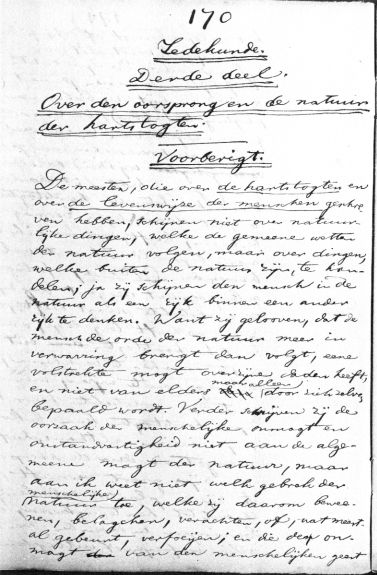 170
Zedekunde.
Derde deel.
Over den oorsprong en de natuur
der hartstogten.
Voorberigt.
De meesten, die over de hartstogten en
over de levenswijze der menschen geschre
ven hebben, schijnen niet over natuur
lijke dingen, welke de gemeene wetten
der natuur volgen, maar over dingen,
welke buiten de natuur zijn, te han
delen; ja zij schijnen den mensch in de
natuur als een rijk binnen een ander
rijk te denken. Want zij gelooven, dat de
mensch de orde der natuur meer in
verwarring brengt dan volgt, eene
volstrekte magt over zijne daden heeft,
en niet van elders maar alleen door zich zelve
bepaald wordt. Verder schrijven zij de
oorzaak der menschelijke onmagt en
onstandvastigheid niet aan de alge-
meene magt der natuur, maar
aan ik weet niet welk gebrek der
menschelijke
natuur toe, welke zij daarom bewee-
nen, belagchen, verachten, of, wat meest
al gebeurt, verfoeijen; en die de on-
magt van den menschelijken geest